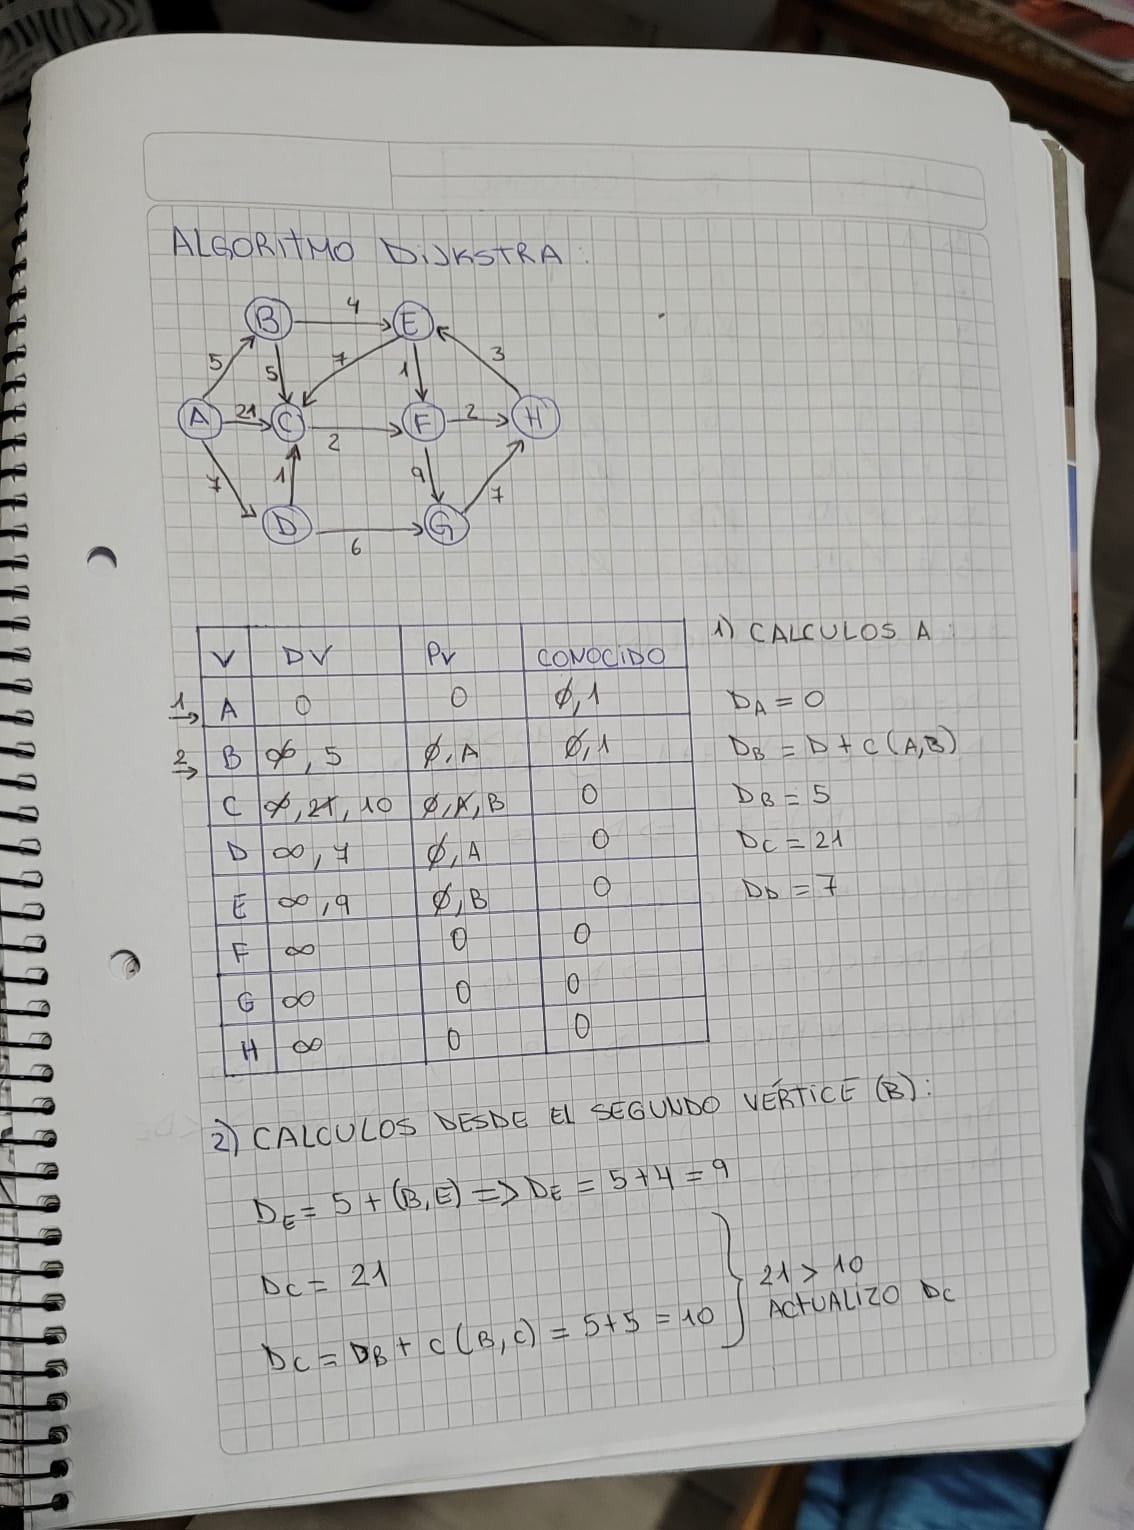 ALGORITMO DIJKSTRA:
B 4 E
5 5 7 1 3
A 21 C 2 F 2 H
7 1 9 7
D 6 G
V DV Pv CONOCIDO
1 A 0 0 0,1
2 B ∞, 5 0,A 0,1
C ∞,21,10 0,A,B 0
D ∞,7 0,A 0
E ∞,9 0,B 0
F ∞ 0 0
G ∞ 0 0
H ∞ 0 0
1) CALCULOS A:
DA = 0
DB = D + C(A,B)
DB = 5
DC = 21
DD = 7
2) CALCULOS DESDE El SEGUNDO VÉRTICE (B):
DE = 5 + (B,E) => DE = 5+4 = 9
DC = 21
DC = DB + C(B,C) = 5+5 = 10
21 > 10
ACTUALIZO DC